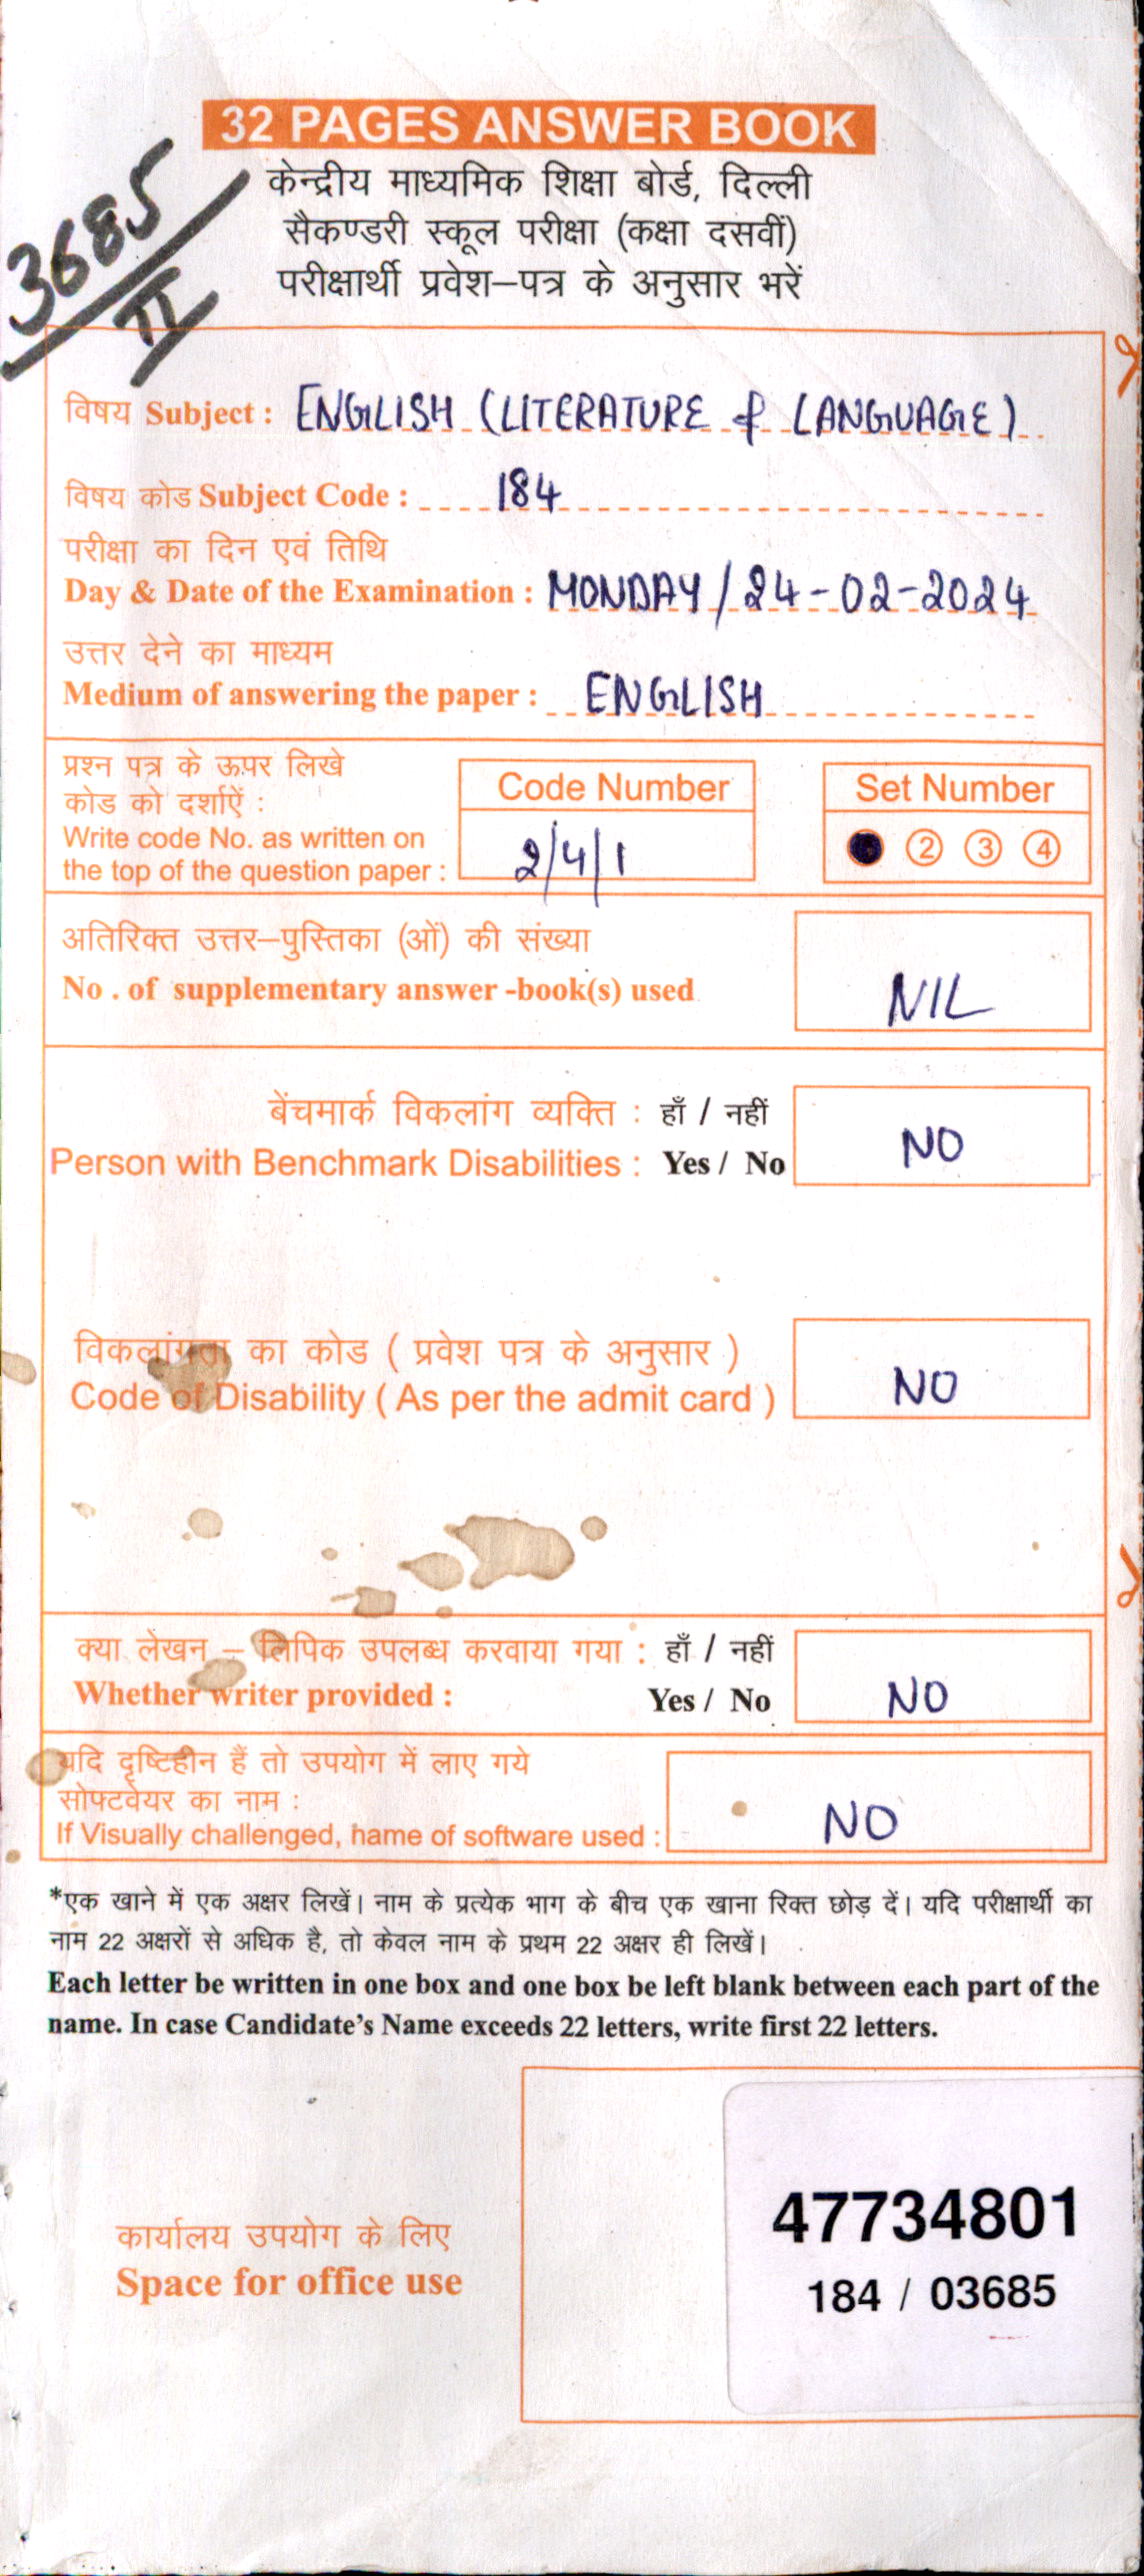 32 PAGES ANSWER BOOK
केन्द्रीय माध्यमिक शिक्षा बोर्ड, दिल्ली
सैकण्डरी स्कूल परीक्षा (कक्षा दसवीं)
परीक्षार्थी प्रवेश–पत्र के अनुसार भरें
3685
II
विषय Subject : ENGLISH (LITERATURE & LANGUAGE)
विषय कोड Subject Code : 184
परीक्षा का दिन एवं तिथि
Day & Date of the Examination : MONDAY / 24-02-2024
उत्तर देने का माध्यम
Medium of answering the paper : ENGLISH
प्रश्न पत्र के ऊपर लिखे
कोड को दर्शाऐं :
Write code No. as written on
the top of the question paper :
Code Number
2/4/1
Set Number
② ③ ④
अतिरिक्त उत्तर–पुस्तिका (ओं) की संख्या
No . of supplementary answer -book(s) used
NIL
बेंचमार्क विकलांग व्यक्ति : हाँ / नहीं
Person with Benchmark Disabilities : Yes / No
NO
विकलांगता का कोड ( प्रवेश पत्र के अनुसार )
Code of Disability ( As per the admit card )
NO
क्या लेखन – लिपिक उपलब्ध करवाया गया : हाँ / नहीं
Whether writer provided : Yes / No
NO
यदि दृष्टिहीन हैं तो उपयोग में लाए गये
सोफ्टवेयर का नाम :
If Visually challenged, name of software used :
NO
*एक खाने में एक अक्षर लिखें। नाम के प्रत्येक भाग के बीच एक खाना रिक्त छोड़ दें। यदि परीक्षार्थी का
नाम 22 अक्षरों से अधिक है, तो केवल नाम के प्रथम 22 अक्षर ही लिखें।
Each letter be written in one box and one box be left blank between each part of the
name. In case Candidate's Name exceeds 22 letters, write first 22 letters.
कार्यालय उपयोग के लिए
Space for office use
47734801
184 / 03685